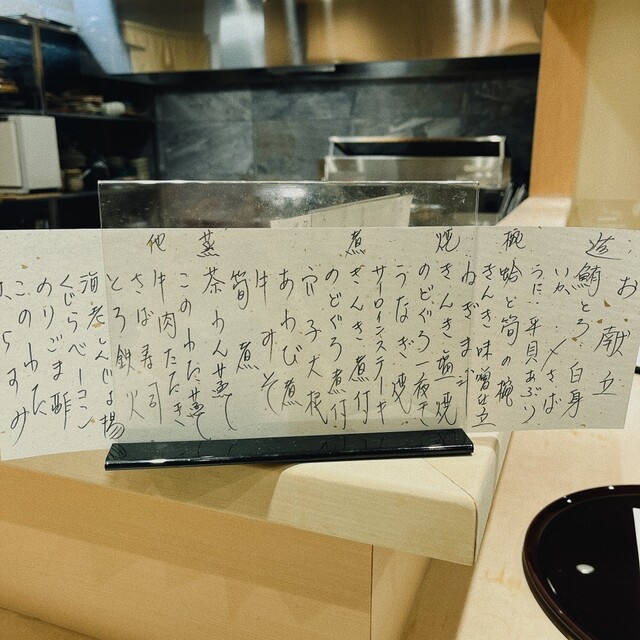 お献立
造
鮪とろ 白身
いか 〆さば
うに 平貝あぶり
椀
蛤と筍の椀
きんき味噌仕立
焼
ねぎま
きんき塩焼
のどぐろ一夜干
うなぎ 焼
サーロインステーキ
煮
きんき煮付
のどぐろ煮付
穴子大根
あわび煮
牛すみそ
筍 煮
蒸
茶わん蒸し
このわた蒸し
他
牛肉たたき
さば寿司
とろ鉄火
海老しんじょ揚
くじらベーコン
のりごま酢
このわた
からすみ